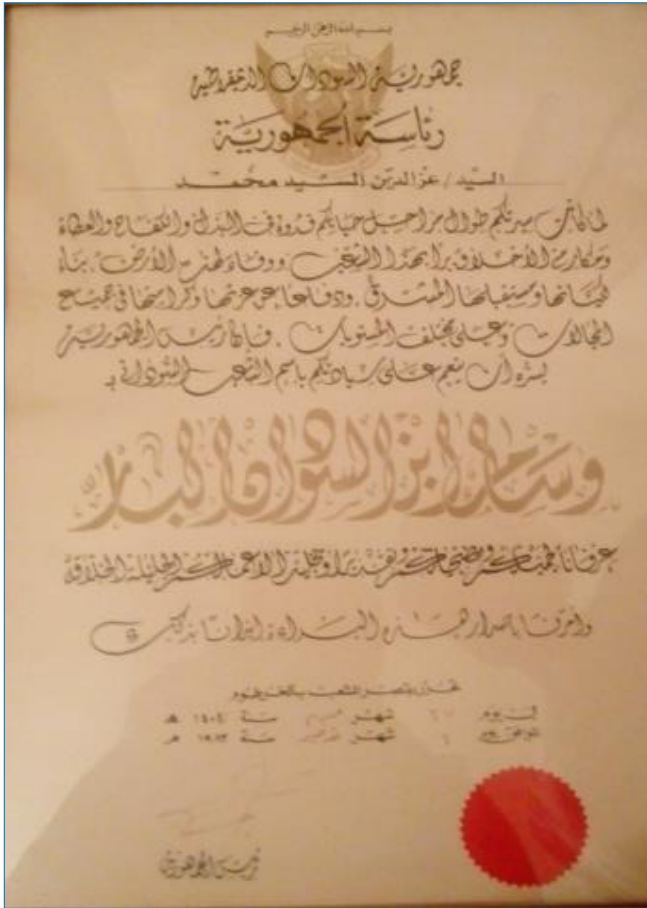 بسم الله الرحمن الرحيم
جمهورية السودان الديمقراطية
رئاسة الجمهورية
السيد / عزالدين السيد محمد
لما كانت سيرتكم طوال مراحل حياتكم قدوة في البذل والكفاح والعطاء
ومكارم الأخلاق برا بهذا الشعب ووفاء لهذه الأرض . بناء
لكيانها ومستقبلها المشرق . ودفاعا عن عزتها وكرامتها في جميع
المجالات وعلى مختلف المستويات . فإن رئيس الجمهورية
يسره أن ينعم على سيادتكم باسم الشعب السوداني بـ
وسام ابن السودان البار
عرفانا بجميلكم وتضحياتكم وتقديرا وتخليدا لأعمالكم الجليلة الخلاقة
وأمرنا باصدار هذه البراءة إيذانا بذلك
تحرر بقصر الشعب بالخرطوم
في يوم ٢٧ شهر محرم سنة ١٤٠٤ هـ
الموافق يوم ٢ شهر نوفمبر سنة ١٩٨٣ م
رئيس الجمهورية